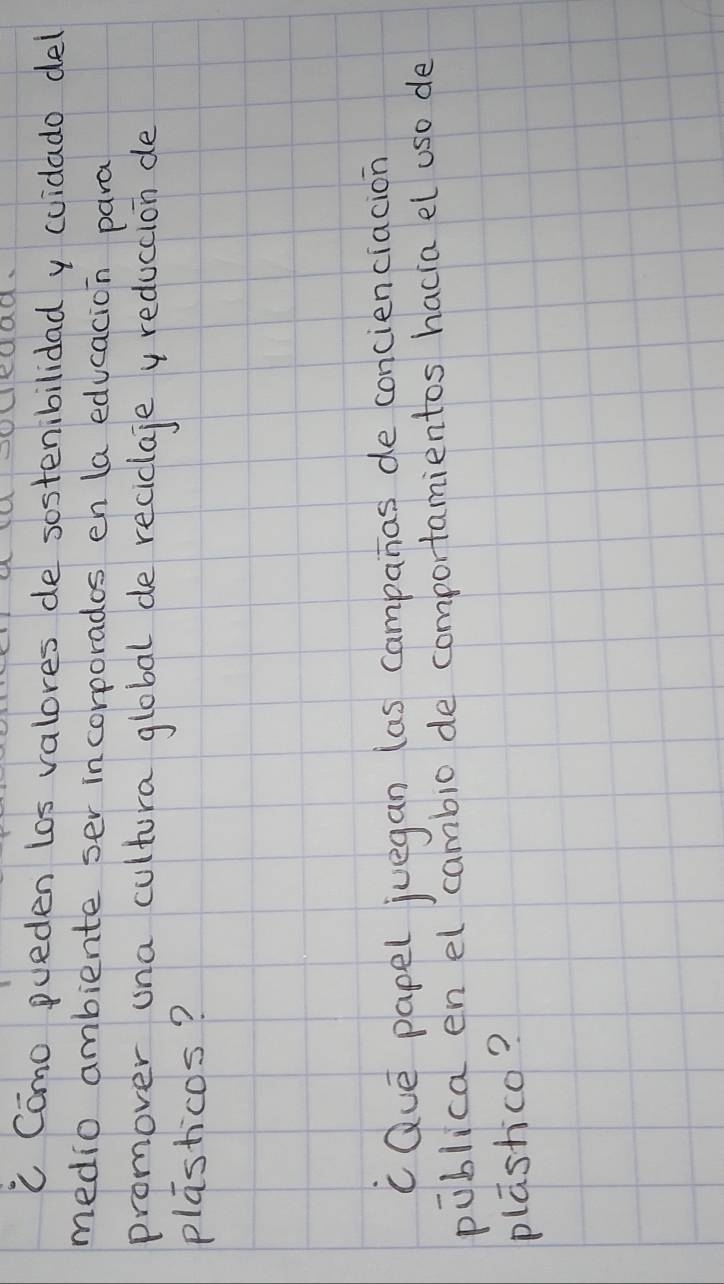 a la sociedad.
¿Cómo pueden los valores de sostenibilidad y cuidado del
medio ambiente ser incorporados en la educación para
promover una cultura global de reciclaje y reducción de
plásticos?
¿Qué papel juegan las campañas de concienciación
pública en el cambio de comportamientos hacia el uso de
plástico?